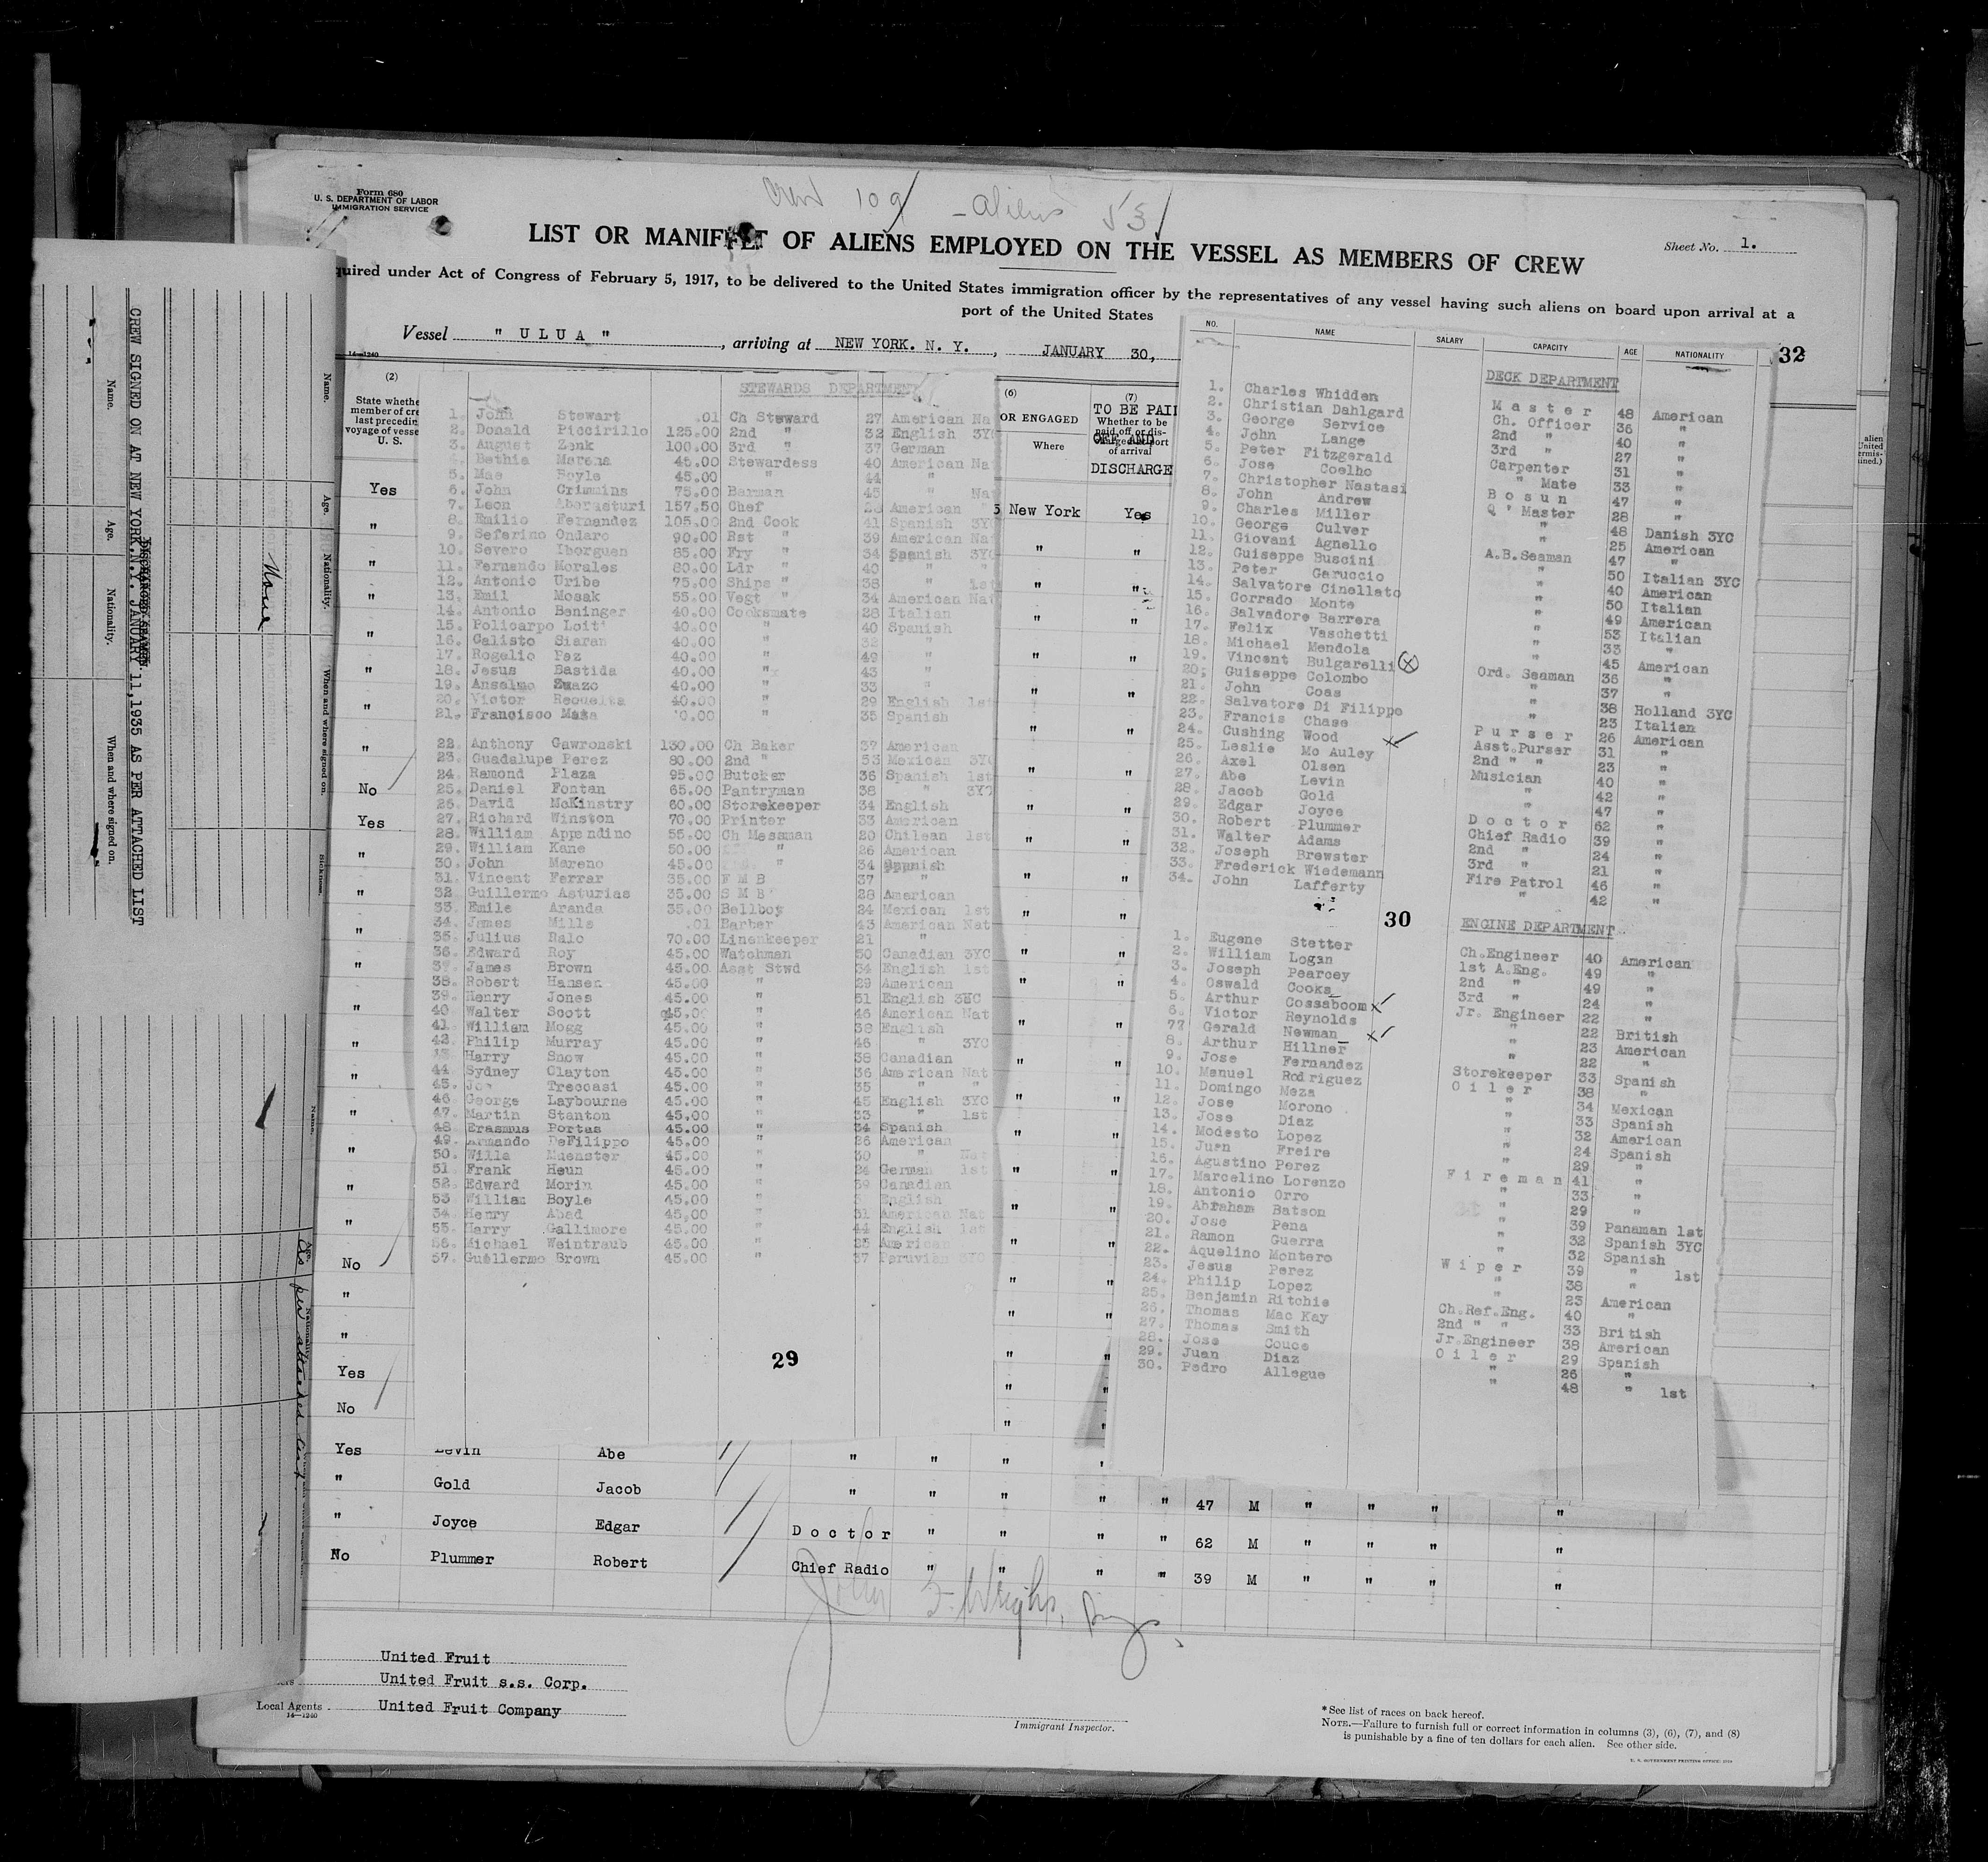 Form 680
U. S. DEPARTMENT OF LABOR
IMMIGRATION SERVICE
Crew 109 - aliens 53
LIST OR MANIFEST OF ALIENS EMPLOYED ON THE VESSEL AS MEMBERS OF CREW
Sheet No. 1.
quired under Act of Congress of February 5, 1917, to be delivered to the United States immigration officer by the representatives of any vessel having such aliens on board upon arrival at a
port of the United States
Vessel " U L U A " , arriving at NEW YORK. N. Y. , JANUARY 30,
14—1240
32
(2)
State whethe
member of cre
last precedin
voyage of vesse
U. S.
Yes
"
"
"
"
"
"
"
No
Yes
"
"
"
"
"
"
"
"
"
"
"
No
"
"
Yes
No
STEWARDS DEPARTMENT
1. John Stewart .01 Ch Steward 27 American Na
2. Donald Piccirillo 125.00 2nd " 32 English 3Y
3. August Zenk 100.00 3rd " 37 German
Bethie Marena 45.00 Stewardess 40 American Na
5. Mae Boyle 45.00 " 44 "
6. John Crimmins 75.00 Barman 45 " Na
7. Leon 157.50 Chef American "
8. Emilio Fernandez 105.00 2nd Cook 41 Spanish 3Y
9. Seferino Ondaro 90.00 Rst " 39 American Na
10. Severo Iborguen 85.00 Fry " 34 Spanish 3Y
11. Fernando Morales 80.00 Ldr " 40 " "
12. Antonio Uribe 75.00 Ships " 38 " 1st
13. Emil Mosak 55.00 Vegt " 34 American Na
14. Antonio Beninger 40.00 Cooksmate 28 Italian
15. Policarpo Loiti 40.00 " 40 Spanish
16. Calisto Siaran 40.00 " 32 "
17. Rogelio Paz 40.00 " 49 "
18. Jesus Bastida 40.00 " 43 "
19. Anselmo Suazo 40.00 " 33 "
20. Victor 40.00 " 29 English 1st
21. Francisco Mata 0.00 " 35 Spanish
22. Anthony Gawronski 130.00 Ch Baker 37 American
23. Guadalupe Perez 80.00 2nd " 53 Mexican 3Y
24. Ramond Plaza 95.00 Butcher 36 Spanish 1st
25. Daniel Fontan 65.00 Pantryman 38 " 3Y
26. David McKinstry 60.00 Storekeeper 34 English
27. Richard Winston 70.00 Printer 33 American
28. William Appendino 55.00 Ch Messman 20 Chilean 1st
29. William Kane 50.00 " 26 American
30. John Moreno 45.00 " 34 Spanish
31. Vincent Ferrar 35.00 F M B 37 "
32. Guillermo Asturias 35.00 S M B 28 American
33. Emile Aranda 35.00 Bellboy 24 Mexican 1st
34. James Mills .01 Barber 43 American Nat
35. Julius Halo 70.00 Linenkeeper 21 "
36. Edward Roy 45.00 Watchman 50 Canadian 3YC
37. James Brown 45.00 Asst Stwd 34 English 1st
38. Robert Hansen 45.00 " 29 American
39. Henry Jones 45.00 " 51 English 3YC
40 Walter Scott 45.00 " 46 American Nat
41. William Mogg 45.00 " 38 English
42. Philip Murray 45.00 " 46 " 3YC
Harry Snow 45.00 " 38 Canadian
44. Sydney Clayton 45.00 " 36 American Nat
45. Joe Treccasi 45.00 " 35 " "
46. George Laybourne 45.00 " 45 English 3YC
47. Martin Stanton 45.00 " 33 " 1st
48. Erasmus Portas 45.00 " 34 Spanish
49. Armando DeFilippo 45.00 " 26 American
50. Willa Muenster 45.00 " 30 " Nat
51. Frank Heun 45.00 " 24 German 1st
52. Edward Morin 45.00 " 39 Canadian
53 William Boyle 45.00 " English
54. Henry Abad 45.00 " 31 American Nat
55. Harry Gallimore 45.00 " 44 English 1st
56. Michael Weintraub 45.00 " 25 American
57. Guellermo Brown 45.00 " 37 Peruvian 3YC
29
(6)
OR ENGAGED
Where
(7)
TO BE PAI
Whether to be
paid off or dis-
charged at port
of arrival
OFF AND
DISCHARGE
5 New York Yes
NO. NAME SALARY CAPACITY AGE NATIONALITY
DECK DEPARTMENT
1. Charles Whidden M a s t e r 48 American
2. Christian Dahlgard Ch. Officer 36 "
3. George Service 2nd " 40 "
4. John Lange 3rd " 27 "
5. Peter Fitzgerald Carpenter 31 "
6. Jose Coelho " Mate 33 "
7. Christopher Nastasi B o s u n 47 "
8. John Andrew Q ' Master 28 "
9. Charles Miller " 48 Danish 3YC
10. George Culver " 25 American
11. Giovani Agnello A.B.Seaman 47 "
12. Guiseppe Buscini " 50 Italian 3YC
13. Peter Garuccio " 40 American
14. Salvatore Cinellato " 50 Italian
15. Corrado Monte " 49 American
16. Salvadore Barrera " 53 Italian
17. Felix Vaschetti " 33 "
18. Michael Mendola " 45 American
19. Vincent Bulgarelli Ord. Seaman 36 "
20; Guiseppe Colombo " 37 "
21. John Coas " 38 Holland 3YC
22. Salvatore Di Filippo " 23 Italian
23. Francis Chase P u r s e r 26 American
24. Cushing Wood Asst.Purser 31 "
25. Leslie Mc Auley 2nd " " 23 "
26. Axel Olsen Musician 40 "
27. Abe Levin " 42 "
28. Jacob Gold " 47 "
29. Edgar Joyce D o c t o r 62 "
30. Robert Plummer Chief Radio 39 "
31. Walter Adams 2nd " 24 "
32. Joseph Brewster 3rd " 21 "
33. Frederick Wiedemann Fire Patrol 46 "
34. John Lafferty " 42 "
30
ENGINE DEPARTMENT
1. Eugene Stetter Ch.Engineer 40 American
2. William Logan 1st A.Eng. 49 "
3. Joseph Pearcey 2nd " 49 "
4. Oswald Cooks 3rd " 24 "
5. Arthur Cossaboom Jr. Engineer 22 "
6. Victor Reynolds " 22 British
77 Gerald Newman " 23 American
8. Arthur Hillner " 22 "
9. Jose Fernandez Storekeeper 33 Spanish
10. Manuel Rodriguez O i l e r 38 "
11. Domingo Meza " 34 Mexican
12. Jose Morono " 33 Spanish
13. Jose Diaz " 32 American
14. Modesto Lopez " 24 Spanish
15. Juan Freire " 29 "
16. Agustino Perez F i r e m a n 41 "
17. Marcelino Lorenzo " 33 "
18. Antonio Orro " 29 "
19. Abraham Batson " 39 Panaman 1st
20. Jose Pena " 32 Spanish 3YC
21. Ramon Guerra " 32 Spanish
22. Aquelino Montero W i p e r 39 " 1st
23. Jesus Perez " 38 "
24. Philip Lopez " 23 American
25. Benjamin Ritchie Ch.Ref.Eng. 40 "
26. Thomas Mac Kay 2nd " " 33 British
27. Thomas Smith Jr.Engineer 38 American
28. Jose Couce O i l e r 29 Spanish
29. Juan Diaz " 26 "
30. Pedro Allegue " 48 " 1st
Yes Levin Abe " " "
" Gold Jacob " " " " " 47 M " " " "
" Joyce Edgar D o c t o r " " " " 62 M " " " "
No Plummer Robert Chief Radio " " " " 39 M " " " "
United Fruit
United Fruit s.s. Corp.
Local Agents United Fruit Company
14—1240
Immigrant Inspector.
* See list of races on back hereof.
NOTE.—Failure to furnish full or correct information in columns (3), (6), (7), and (8)
is punishable by a fine of ten dollars for each alien. See other side.
U. S. GOVERNMENT PRINTING OFFICE
CREW SIGNED ON AT NEW YORK.N.Y. JANUARY 11,1935 AS PER ATTACHED LIST
Name. Age. Nationality. When and where signed on.
Name. Age. Nationality. When and where signed on. Sickness.
None
Name. Age. Nationality.
as per attached list
alien
United
ermis-
ined.)